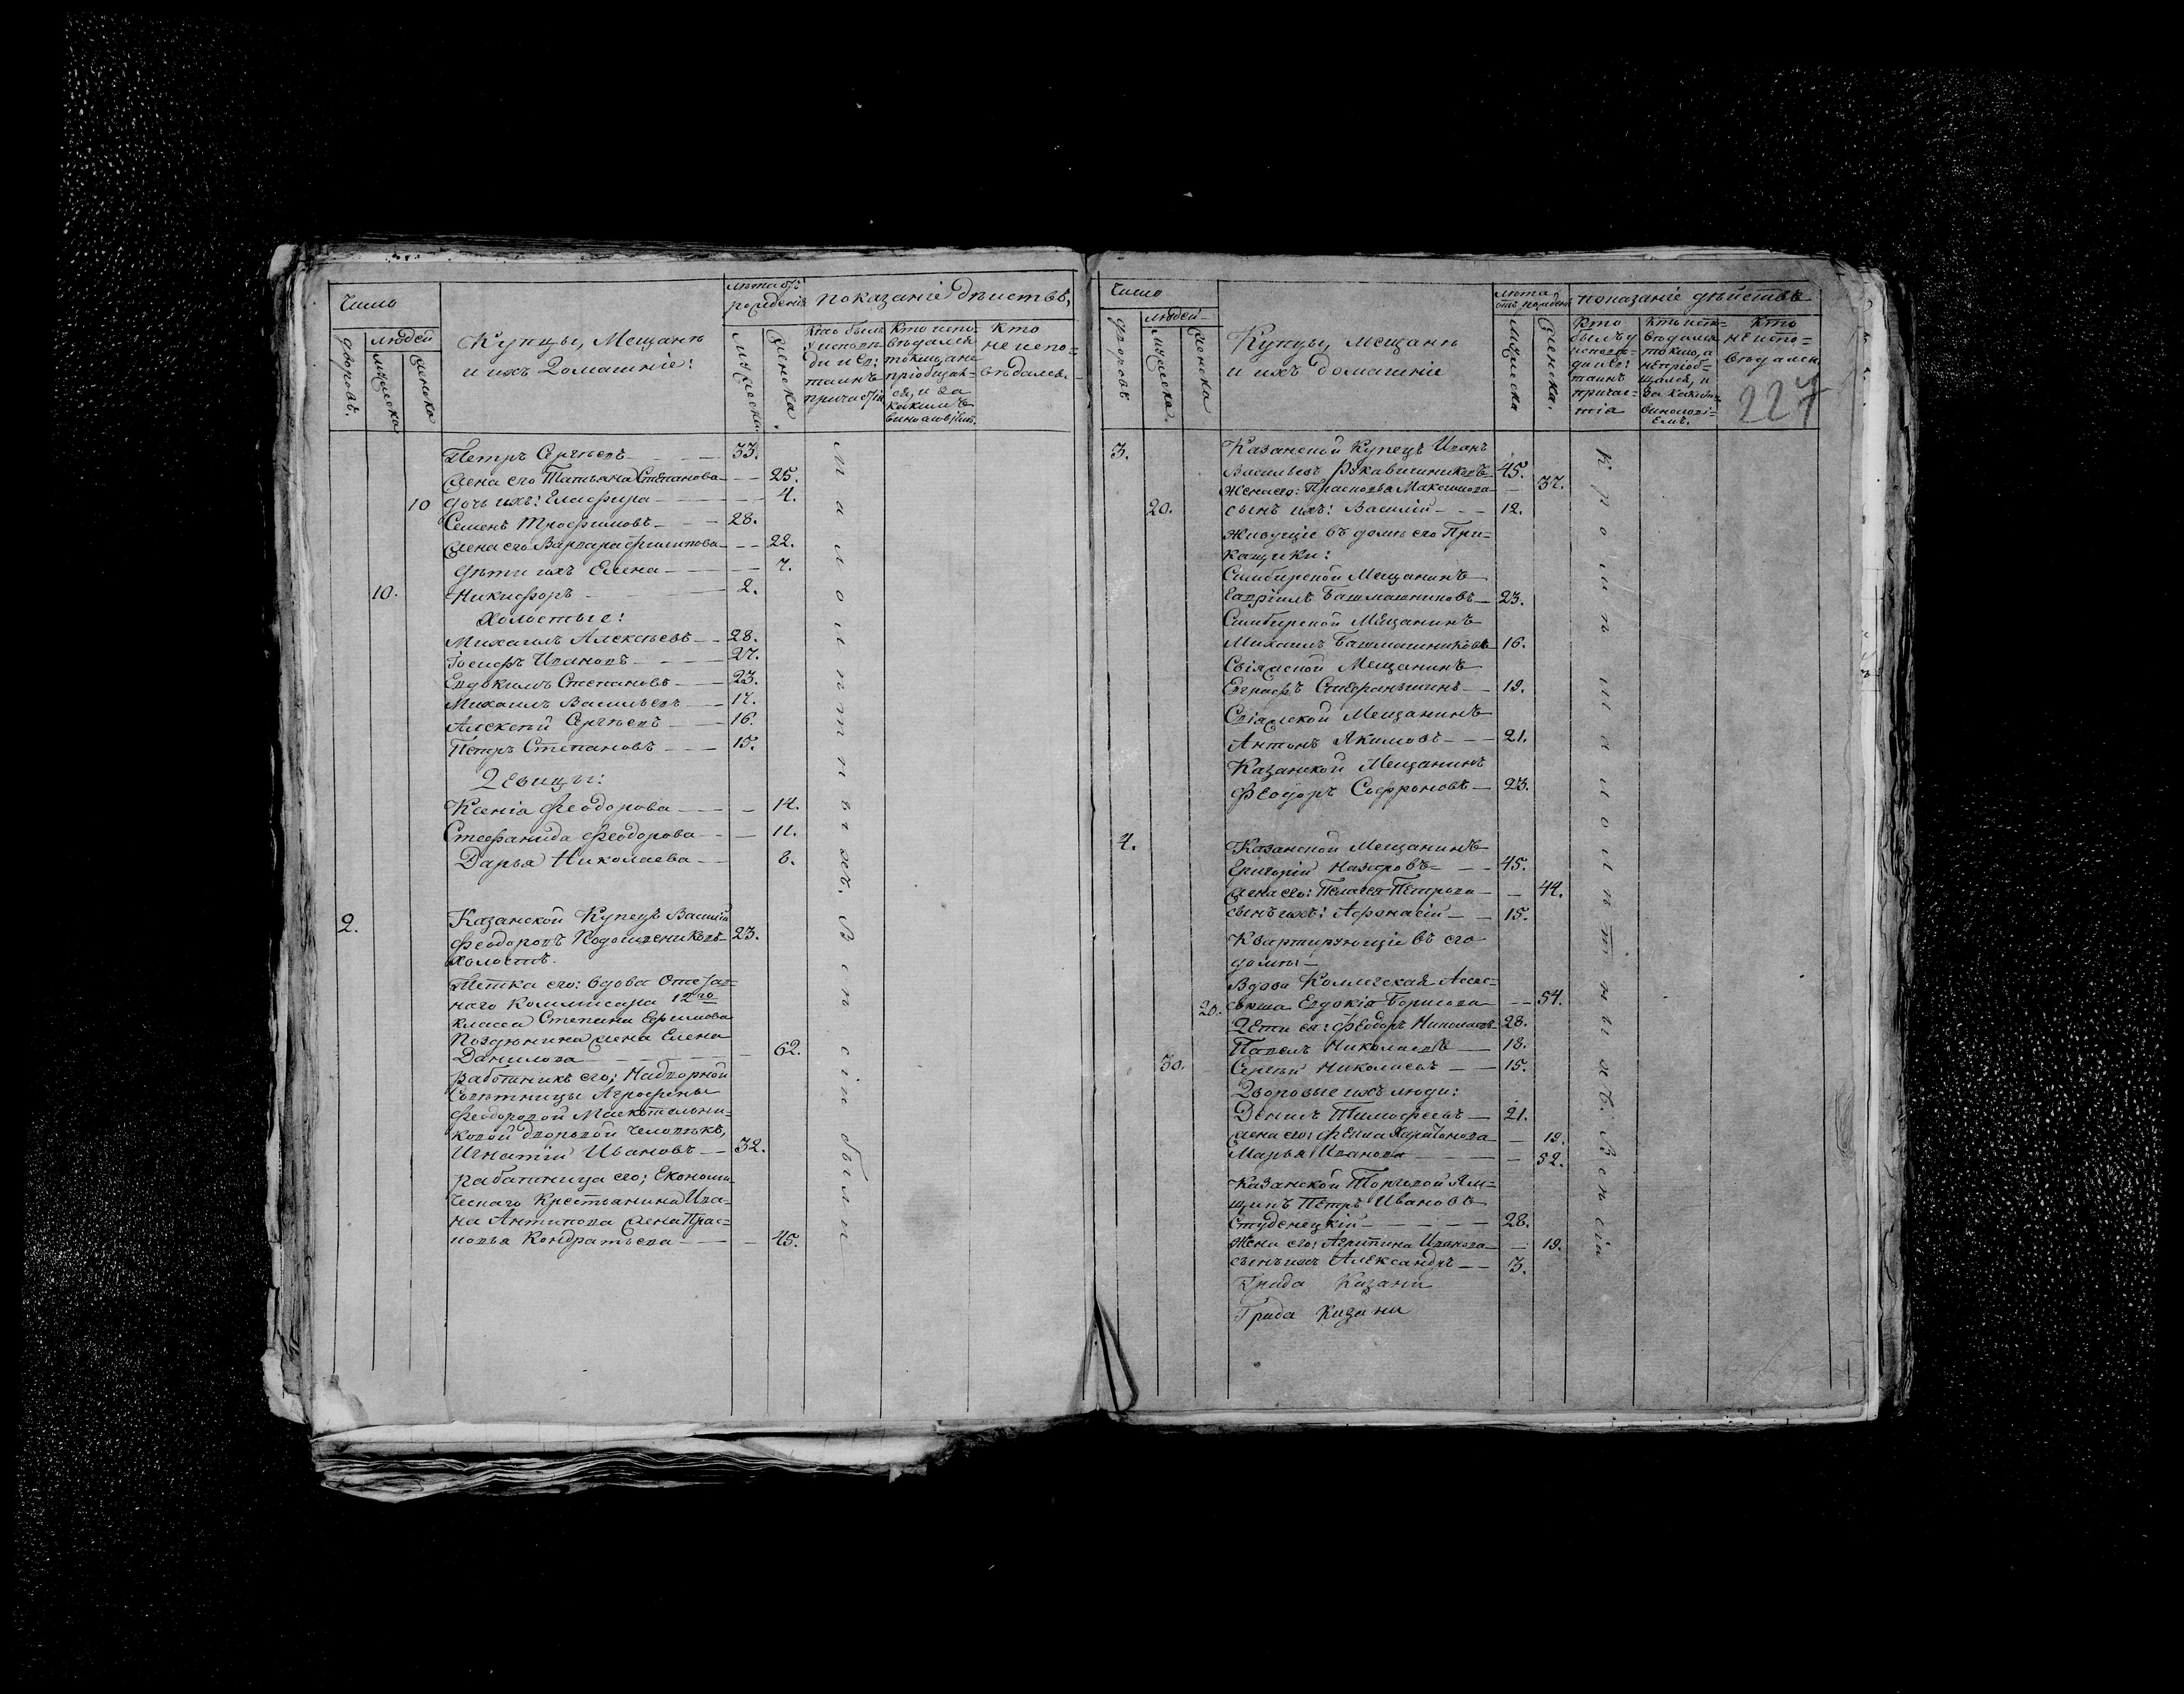 Число
людей
дворовъ.
мужеска
женска
Купцы, Мещанѣ
и ихъ Домашніе:
лѣта отъ
рожденія
мужеска.
женска.
показаніе дѣиствъ,
Кто былъ
у исповѣ-
ди и св:
таинъ
причастія
Кто испо-
вѣдался
токмо, а не
пріобщал-
ся, и за
какимъ
винословіемъ.
Кто
не испо-
вѣдался.
Петръ Сергѣевъ — 33.
жена его Татьяна Степанова — 25.
10 дочь ихъ: Гласфира — 4.
Семенъ Трофимовъ — 28.
жена его Варвара Филипова — 22.
дѣти ихъ Елена — 7.
10. Никифоръ — 2.
Холостые:
Михаилъ Алексѣевъ — 28.
Іосифъ Ивановъ — 27.
Евдокимъ Степановъ — 23.
Михаилъ Васильевъ — 17.
Алексѣй Сергѣевъ — 16.
Петръ Степановъ — 15.
Девицы:
Ксенія Феодорова — 14.
Стефанида Феодорова — 11.
Дарья Николаева — 8.
2. Казанской Купецъ Василій
Феодоровъ Подошвениковъ — 23.
холостъ.
Тетка его: вдова Отстав-
наго Коммисара 12го
класса Степана Ефимова
Позднѣнина жена Елена
Данилова — 62.
Работникъ его; Надворной
Совѣтницы Агрофены
Феодоровой Москотельни-
ковой дворовой человѣкъ,
Игнатій Ивановъ — 32.
работница его; Економи-
ческаго Крестьянина Ива-
на Антипова жена Прас-
ковья Кондратьева — 45.
малолѣтныхъ. Всѣ сіи были
Число
людей
дворовъ
мужеска.
женска
Купцы, мещанѣ
и ихъ домашніе
лѣта
отъ рожденія
мужеска
женска.
показаніе дѣйствъ
Кто
былъ у
исповѣ-
ди и св:
таинъ
причас-
тія
Кто испо-
вѣдался
токмо, а
не пріоб-
щался, и
за какимъ
винослові-
емъ.
Кто
не испо-
вѣдался
227
3. Казанской Купецъ Иванъ
Васильевъ Рукавишниковъ — 45.
жена его: Прасковья Максимова — 37.
20. сынъ ихъ: Василій — 12.
Живущіе въ домѣ его При-
кащики:
Симбирской Мещанинъ
Гавріилъ Башмашниковъ — 23.
Симбирской Мещанинъ
Михаилъ Башмашниковъ — 16.
Свіяжской Мещанинъ
Евграфъ — 19.
Свіяжской Мещанинъ
Антонъ Якимовъ — 21.
Казанской Мещанинъ
Феодоръ Софроновъ — 23.
4. Казанской Мещанинъ
Григорій Назаровъ — 45.
жена его: Пелагея Петрова — 44.
сынъ ихъ: Афонасій — 15.
Квартирующіе въ его
домѣ:
Вдова Коллегская Асес-
20. сорша Евдокія Борисова — 54.
Дети ея: Феодоръ Николаевъ 28.
Павелъ Николаевъ — 18.
30. Сергѣй Николаевъ — 15.
Дворовые ихъ люди:
Денисъ Тимофеевъ — 21.
жена его: Фекла Харитонова — 19.
Марья Иванова — 52.
Казанской Торговой Ям-
щикъ Петръ Ивановъ
Студенецкій — 28.
Жена его; Агрипина Иванова — 19.
сынъ ихъ Александръ — 3.
Града Казани
Града Казани
Кромѣ малолѣтныхъ. Всѣ сіи